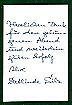 Herzlichen Dank
für den schö-
nen Abend
und weiterhin
guten Erfolg
Ihre